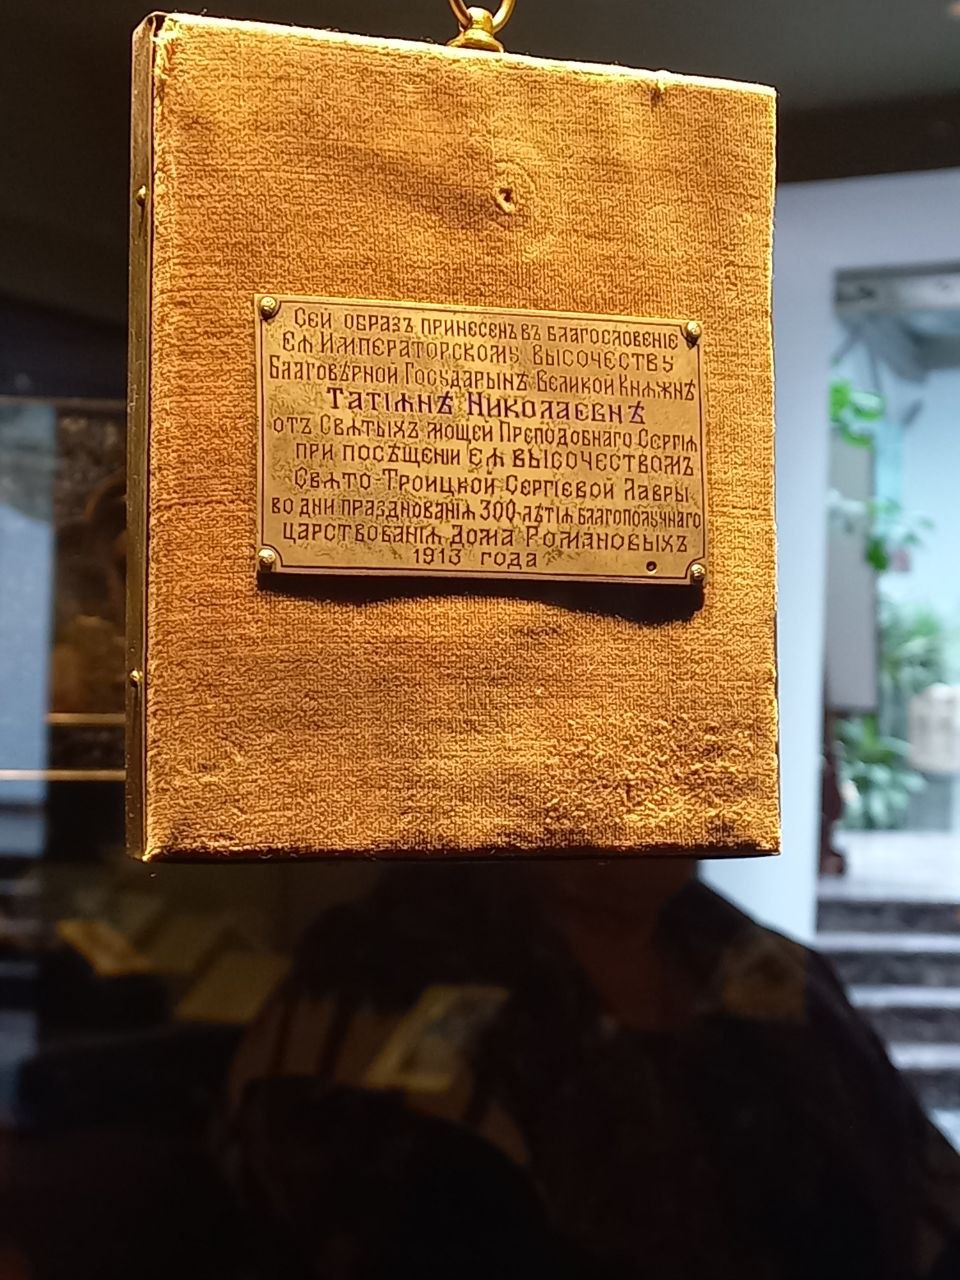 Сей образъ принесенъ въ благословеніе
Еѧ Императорскомꙋ Высочествꙋ
Благовѣрной Госꙋдарынѣ Великой Кнѧжнѣ
Татіѧнѣ Николаевнѣ
отъ Свѧтыхъ мощей Преподобнаго Сергіѧ
при посѣщении Еѧ Высочествомъ
Свѧто-Троицкой Сергіевой Лавры
во дни празднованіѧ 300-лѣтіѧ благополꙋчнаго
царствованіѧ Дома Романовыхъ
1913 года